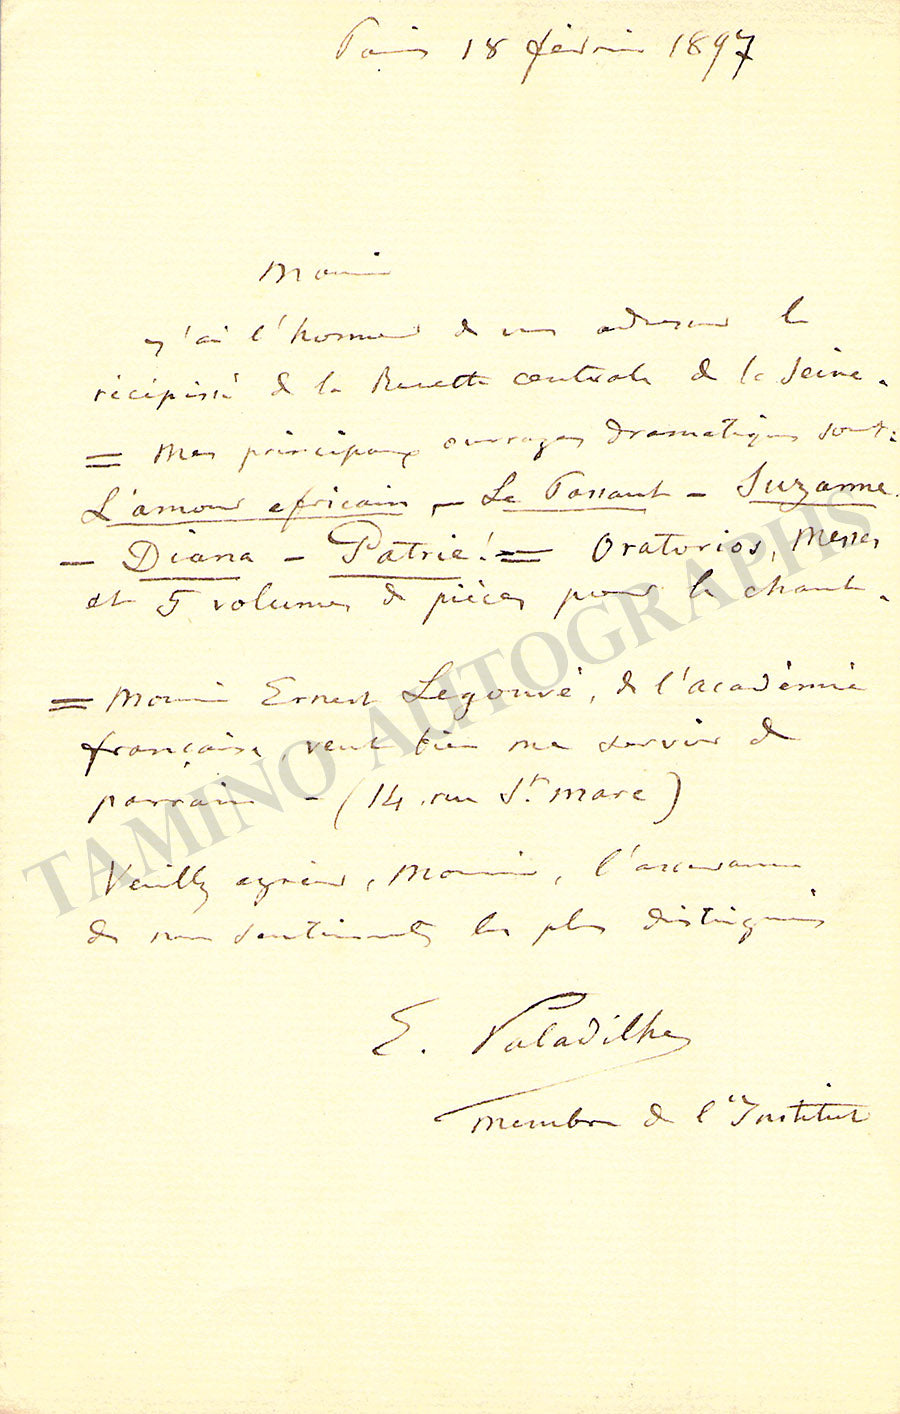 Paris 18 février 1897
Monsieur
j'ai l'honneur de vous adresser le
récépissé de la Recette centrale de la Seine.
= Mes principaux ouvrages dramatiques sont:
L'amour africain, - Le Passant - Suzanne.
- Diana - Patrie! = Oratorios, Messes
et 5 volumes de pièces pour le chant.
= Monsieur Ernest Legouvé, de l'académie
française, veut bien me servir de
parrain - (14 rue St. Marc)
Veuillez agréer, Monsieur, l'assurance
de mes sentiments les plus distingués
E. Paladilhe
membre de l'Institut
TAMINO AUTOGRAPHS